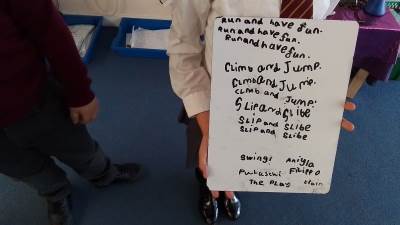 Run and have fun.
Run and have fun.
Run and have fun.
Climb and Jump.
Climb and Jump.
climb and Jump.
Slip and Slibe
Slip and Slibe
Slip and Slibe
Swing! Anigla
Filippo
The Play